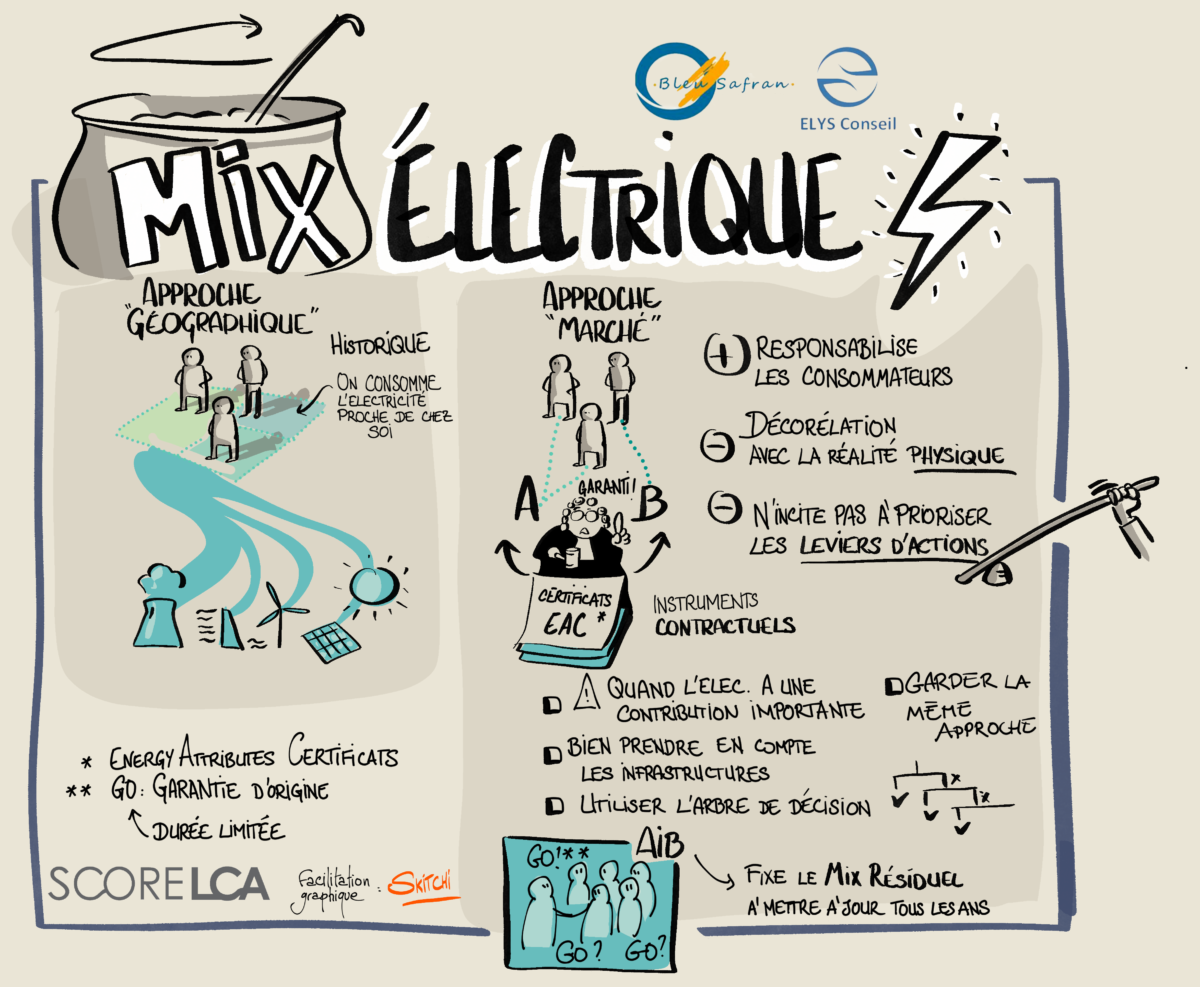 Bleu Safran
ELYS Conseil
MiX ÉLECTRIQUE
APPROCHE
"GÉOGRAPHIQUE"
HISTORIQUE
ON CONSOMME
L'ELECTRICITÉ
PROCHE DE CHEZ
SOI
APPROCHE
"MARCHÉ"
A
GARANTI!
B
CERTIFICATS
EAC *
INSTRUMENTS
CONTRACTUELS
+ RESPONSABILISE
LES CONSOMMATEURS
- DÉCORÉLATION
AVEC LA RÉALITÉ PHYSIQUE
- N'INCITE PAS À PRIORISER
LES LEVIERS D'ACTIONS
! QUAND L'ELEC. A UNE
CONTRIBUTION IMPORTANTE
BIEN PRENDRE EN COMPTE
LES INFRASTRUCTURES
UTILISER L'ARBRE DE DÉCISION
GARDER LA
MÊME
APPROCHE
* ENERGY ATTRIBUTES CERTIFICATS
** GO: GARANTIE D'ORIGINE
DURÉE LIMITÉE
SCORELCA
Facilitation
graphique : SKITCHI
AiB
GO!**
GO?
GO?
FIXE LE MIX RÉSIDUEL
A' METTRE A' JOUR TOUS LES ANS